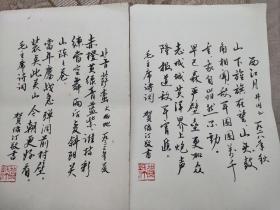 西江月 井冈山 一九二八年秋
山下旌旗在望 山头鼓
角相闻 敌军围困万千
重 我自岿然不动
早已森严壁垒 更加众
志成城 黄洋界上炮声
隆 报道敌军宵遁
毛主席诗词 贺绿汀敬书
菩萨蛮 大柏地 一九三三年夏
赤橙黄绿青蓝紫 谁持彩
练当空舞 雨后复斜阳 关
山阵阵苍
当年鏖战急 弹洞前村壁
装点此关山 今朝更好看
毛主席诗词 贺绿汀敬书